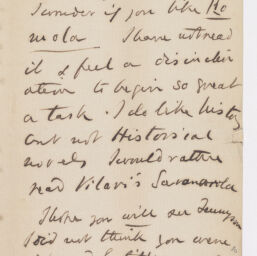 I wonder if you like Ro
mola I have not read
it & feel a disinclin
ation to begin so great
a task. I do like history
but not Historical
novels I would rather
read Vilari's Savonarola
I hope you will see Tennyson
I did not think you were